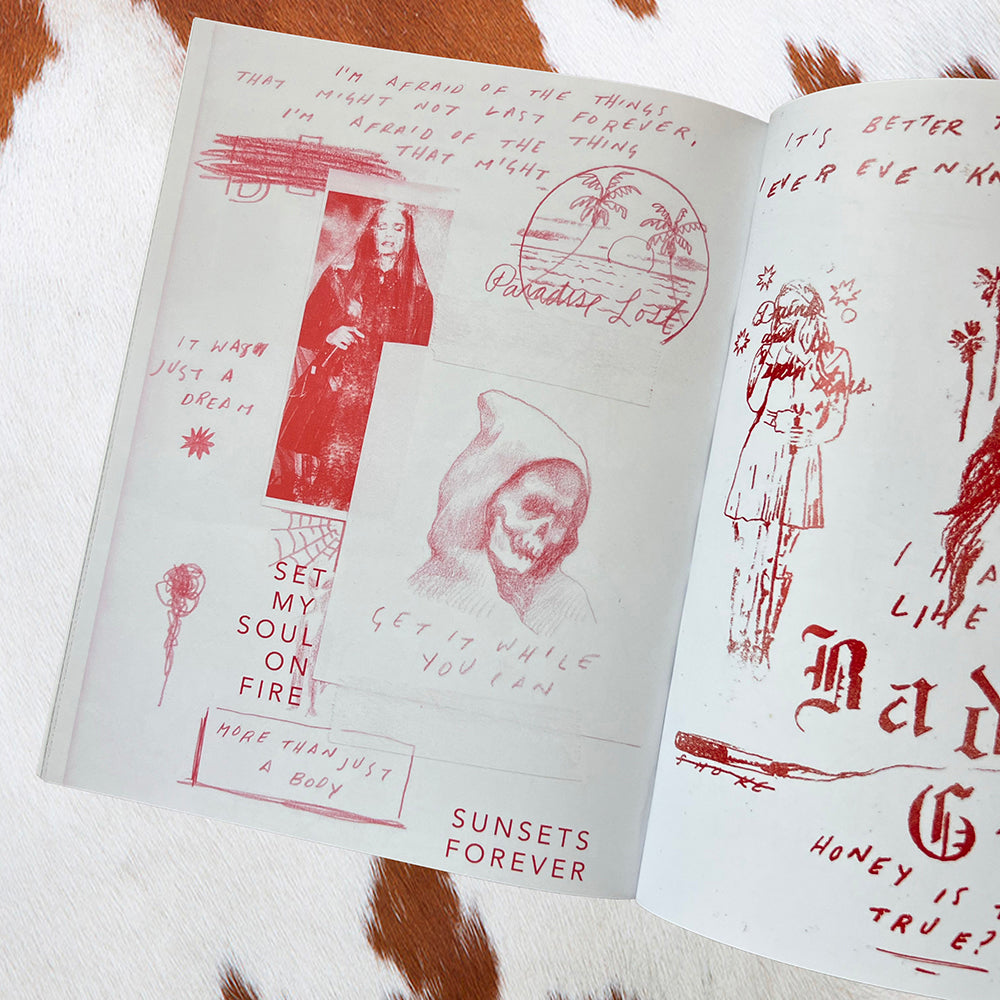 I'M AFRAID OF THE THINGS
THAT MIGHT NOT LAST FOREVER,
I'M AFRAID OF THE THING
THAT MIGHT
Paradise Lost
IT WAS
JUST A
DREAM
SET
MY
SOUL
ON
FIRE
GET IT WHILE
YOU CAN
MORE THAN JUST
A BODY
SUNSETS
FOREVER
IT'S BETTER
EVER EVEN
LIKE
Bad
SMOKE
HONEY IS
TRUE?